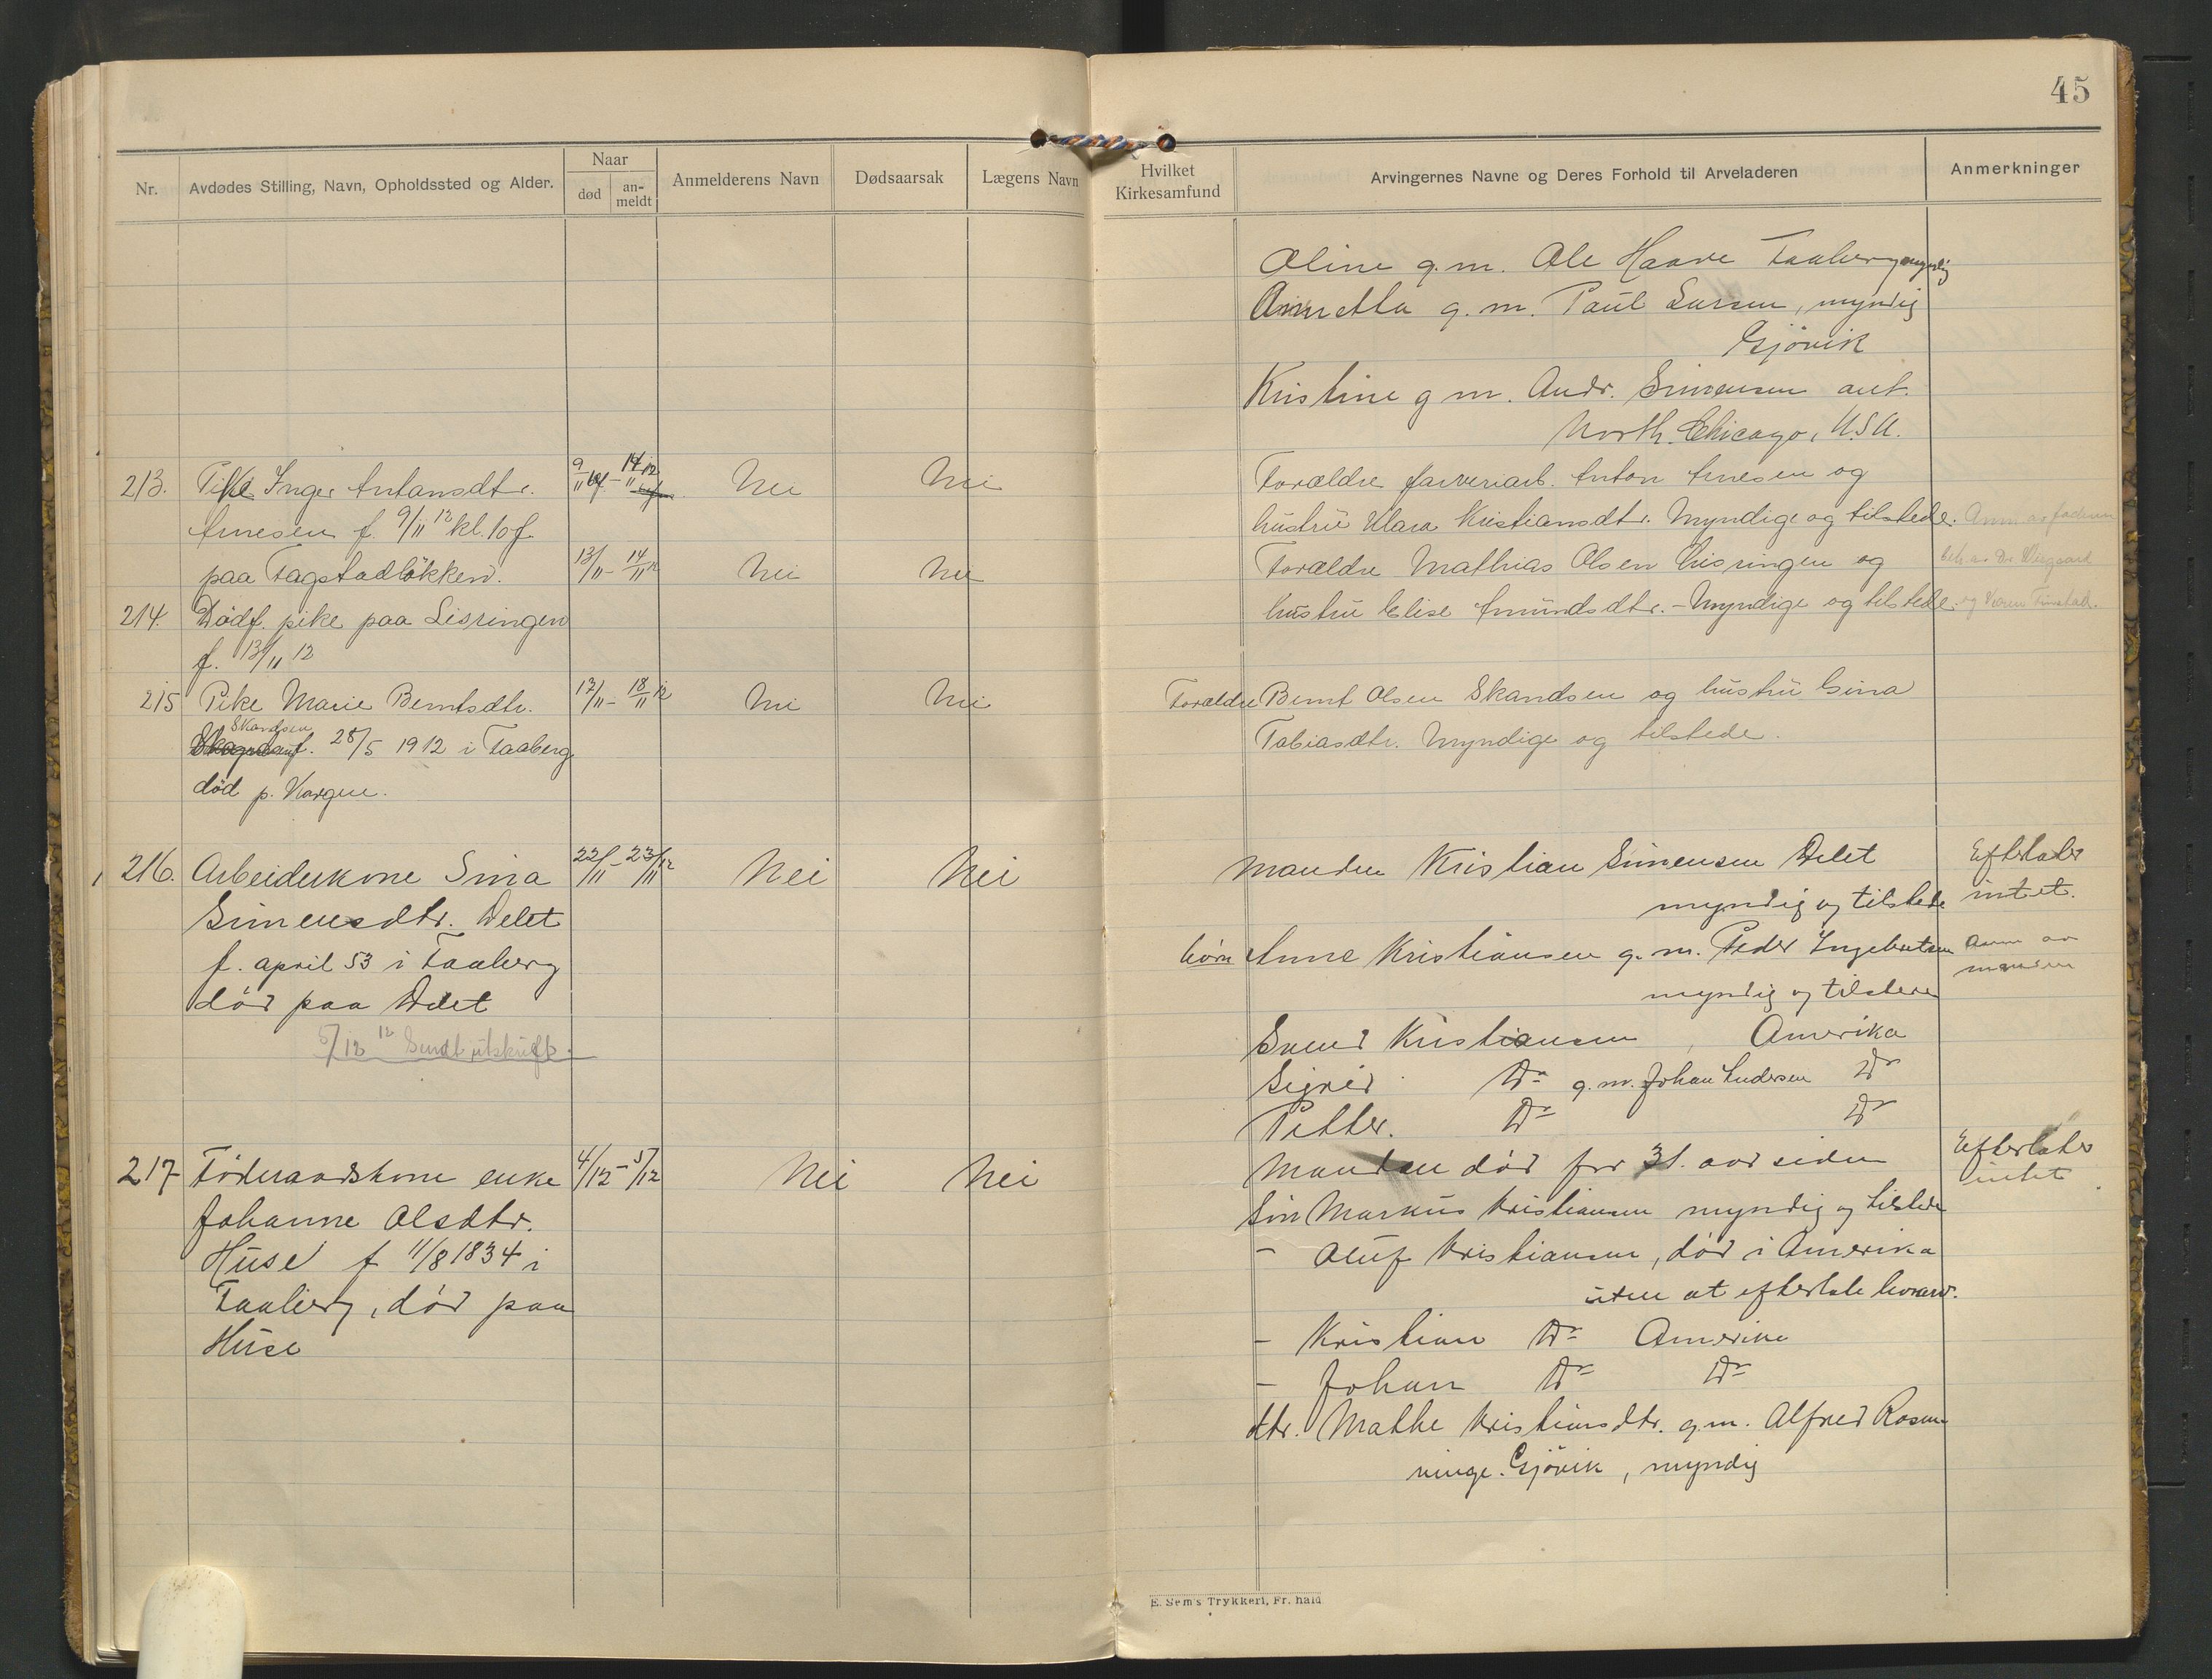 45
Nr.
Avdødes Stilling, Navn, Opholdssted og Alder.
Naar
død
an-
meldt
Anmelderens Navn
Dødsaarsak
Lægens Navn
Hvilket
Kirkesamfund
Arvingernes Navne og Deres Forhold til Arveladeren
Anmerkninger
Oline g.m. Ole Haave Faaberg myndig
Annetta g.m. Paul Larsen, myndig
Gjövik
Kristine g m. Andr. Simensen ant.
North. Chicago, U.S.A.
213. Pike Inger Antonsdtr. 9/11 - 14/11 12 Nei Nei
Arnesen f. 9/11 12 kl. 10 f.
paa Fagstadlökken.
Forældre farveriarb. Anton Arnesen og
hustru Klara Kristiansdtr. Myndige og tilstede. Anm av faderen
214. Dödf. pike paa Lisringen 13/11 - 14/11 12 Nei Nei
f. 13/11 12
Forældre Mathias Olsen Lisringen og
hustru Elise Amundsdtr. - Myndige og tilstede.
215 Pike Marie Berntsdtr. 17/11 - 18/11 12 Nei Nei
Skandsen
f. 28/5 1912 i Faaberg
död p. Korgen.
Forældre Bernt Olsen Skandsen og hustru Gina
Tobiasdtr. Myndige og tilstede.
216. Arbeiderkone Sina 22/11 - 23/11 12 Nei Nei
Simensdtr. Delet
f. april 53 i Faaberg
död paa Delet
5/12 12 Sendt utskrift.
Manden Kristian Simensen Delet
myndig og tilstede
Efterlater
intet.
börn Anne Kristiansen g.m. Peder Ingebretsen
myndig og tilstede
Anm av
manden
Svend Kristiansen, Amerika
Sigrid Do g.m. Johan Andersen Do
Petter. Do Do
217 Föderaadskone enke 4/12 - 5/12 Nei Nei
Johanne Olsdtr.
Huse f 11/8 1834 i
Faaberg, död paa
Huse
Manden död for 31. aar siden
Efterlater
intet
Sön Markus Kristiansen myndig og tilstede
- Oluf Kristiansen, död i Amerika
uten at efterlate
- Kristian Do Amerika
- Johan Do Do
dtr. Mathe Kristiansdtr. g.m. Alfred
Gjövik, myndig
E. Sem's Trykkeri, Fr. hald